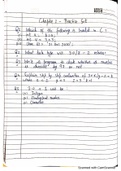 Chapter 2 - Practice Set
Q1) Which of the following is invalid in C ?
(i) int a ; b = a ;
(ii) int v = 3³ ;
(iii) char dt = '21 Dec 2020' ;
Q2) What data type will 3.0/8 - 2 return ?
Q3) Write a program to check whether a number
is divisible by 97 or not
Q4) Explain step by step evaluation of 3*x/y - z + k
where x = 2, y = 3, z = 3, k = 1
Q5) 3.0 + 1 will be
(a) Integer
(b) Floating point number
(c) Character
Scanned with CamScanner